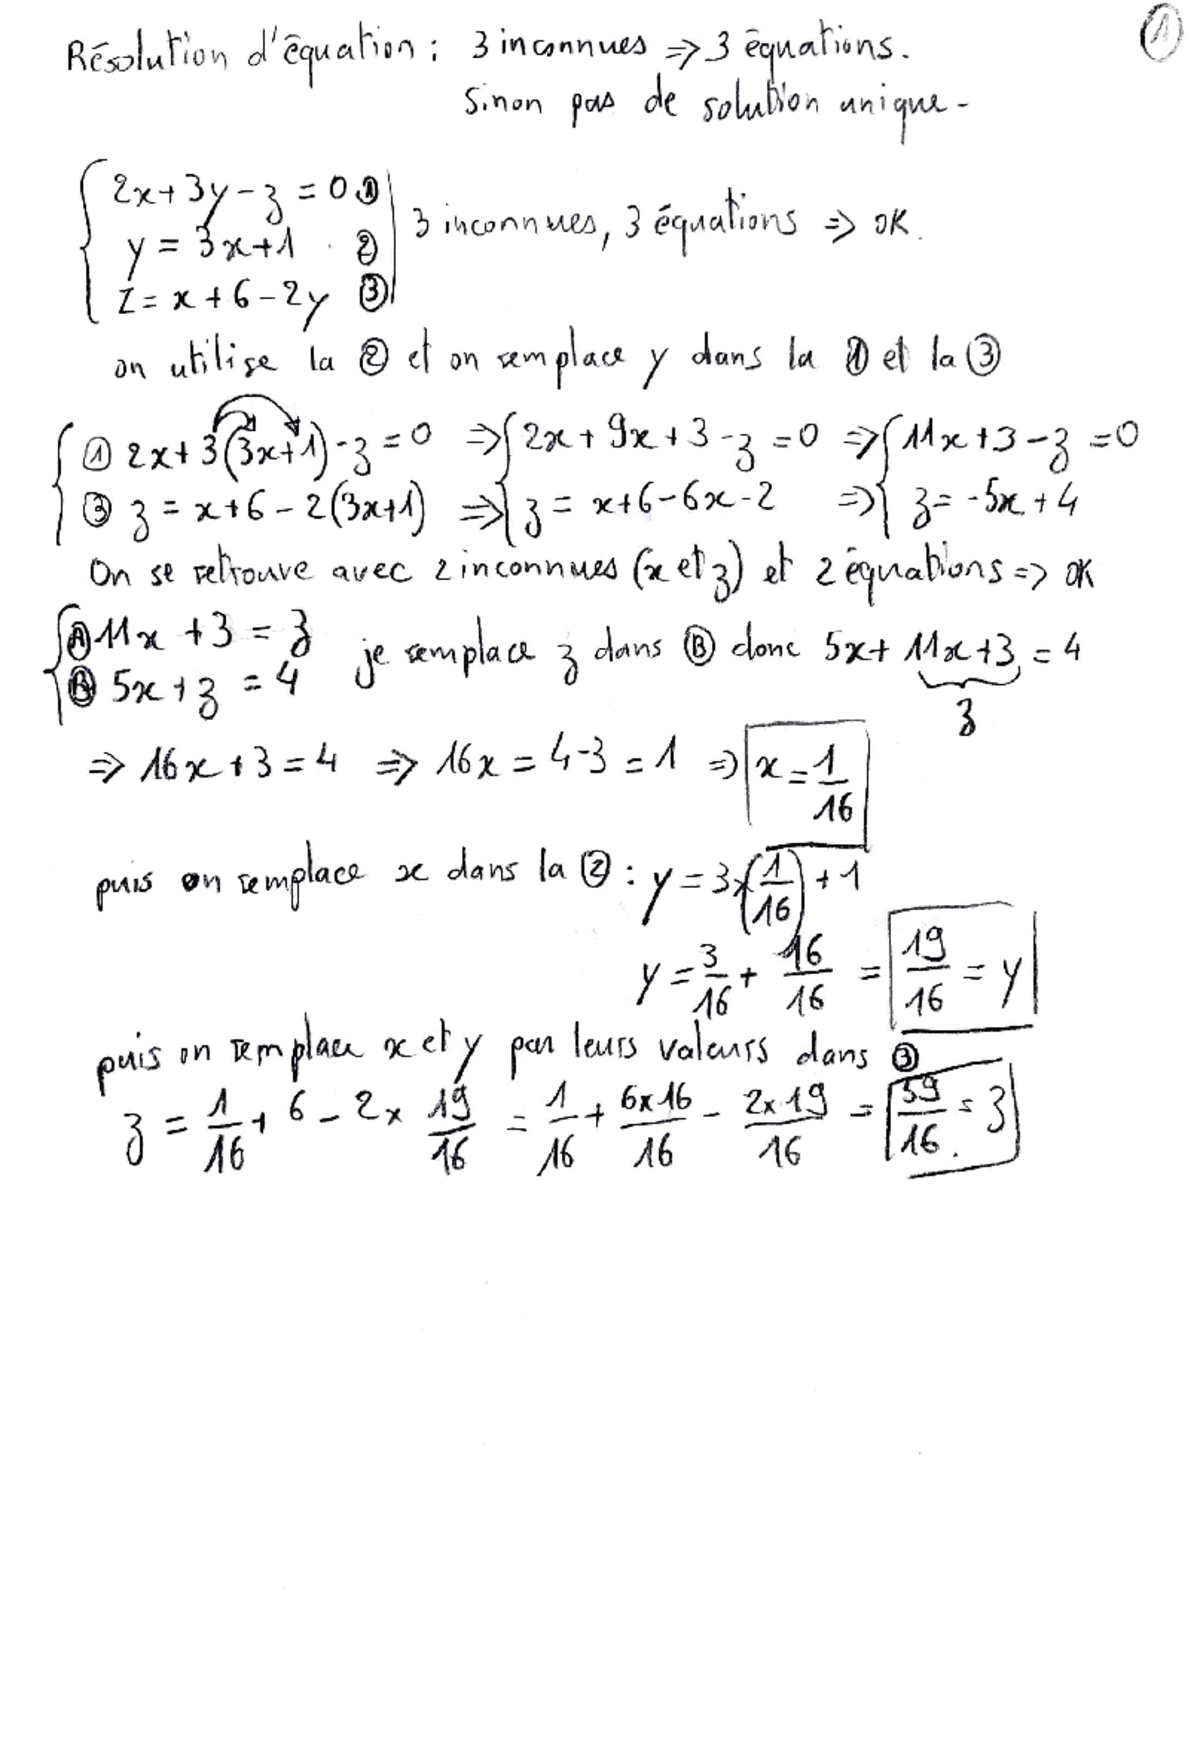 ①
Résolution d'équation : 3 inconnues => 3 équations.
Sinon pas de solution unique -
2x + 3y - z = 0 ①
y = 3x + 1 ②
z = x + 6 - 2y ③
3 inconnues, 3 équations => OK.
on utilise la ② et on remplace y dans la ① et la ③
① 2x + 3(3x+1) - z = 0 => 2x + 9x + 3 - z = 0 => 11x + 3 - z = 0
③ z = x + 6 - 2(3x+1) => z = x + 6 - 6x - 2 => z = -5x + 4
On se retrouve avec 2 inconnues (x et z) et 2 équations => OK
Ⓐ 11x + 3 = z
Ⓑ 5x + z = 4
je remplace z dans Ⓑ donc 5x + 11x + 3 = 4
z
=> 16x + 3 = 4 => 16x = 4 - 3 = 1 => x = 1/16
puis on remplace x dans la ② : y = 3 x (1/16) + 1
y = 3/16 + 16/16 = 19/16 = y
puis on remplace x et y par leurs valeurs dans ③
z = 1/16 + 6 - 2 x 19/16 = 1/16 + 6x16/16 - 2x19/16 = 59/16 = z